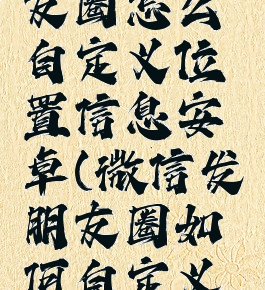 友圈怎么
自定义位
置信息安
卓(微信发
朋友圈如
何自定义